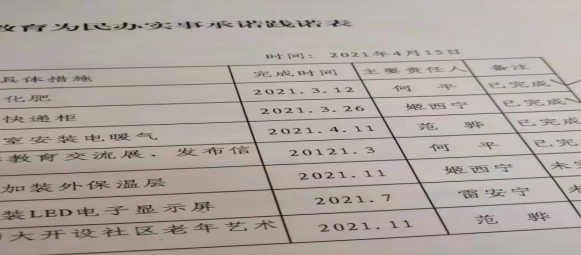 教育为民办实事承诺践诺表
时间：2021年4月15日
具体措施 完成时间 主要责任人 备注
化肥 2021.3.12 何平 已完成
快递柜 2021.3.26 姬西宁 已完成
室安装电暖气 2021.4.11 范骅 已完成
教育交流展、发布信 20121.3 何平 已完
加装外保温层 2021.11 姬西宁 未
装LED电子显示屏 2021.7 雷安宁 未
大开设社区老年艺术 2021.11 范骅